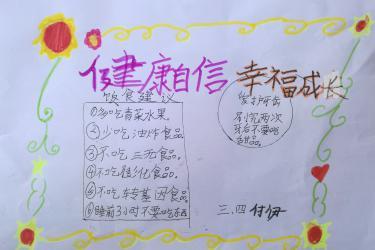 健康自信 幸福成长
饮食建议
①多吃青菜水果
②少吃油炸食品
③不吃三无食品
④不吃膨化食品
⑤不吃转基因食品
⑥睡前3小时不要吃东西
爱护牙齿
早晚两次
牙后不要吃
甜品
三、四 付伊